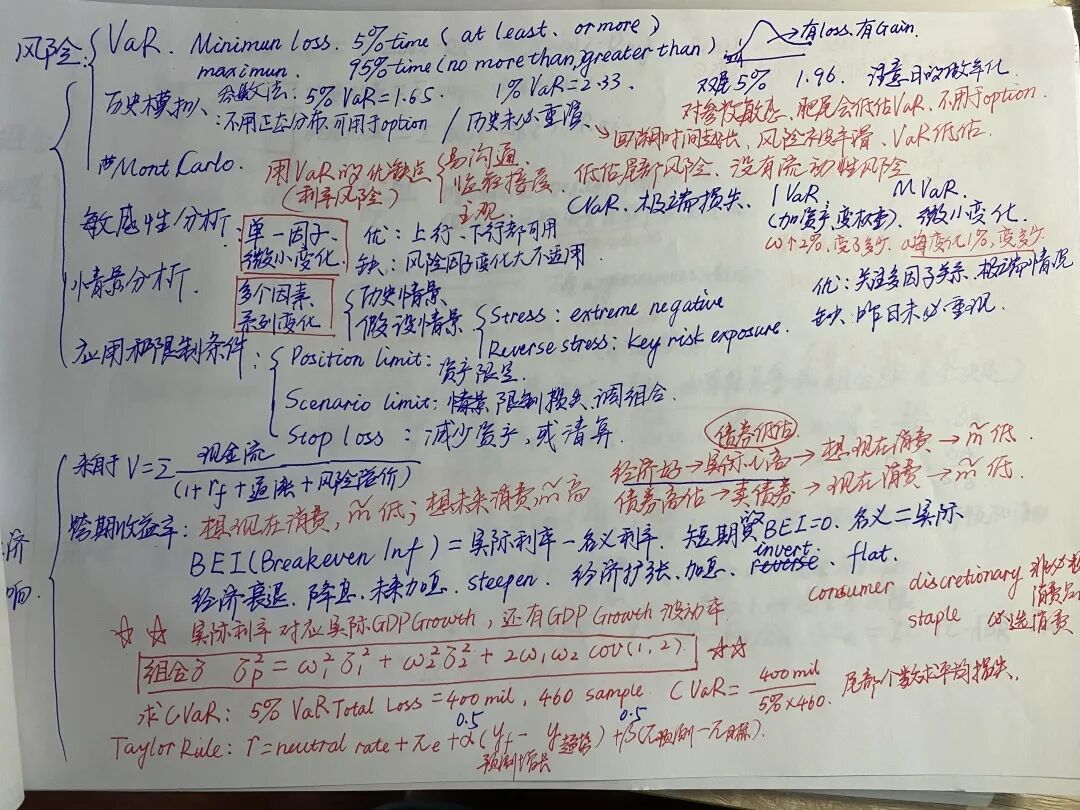 风险 VaR. Minimun loss. 5% time (at least. or more)
maximun. 95% time (no more than, greater than)
有loss. 有Gain.
历史模拟、参数法: 5% VaR=1.65. 1% VaR=2.33. 双尾5% 1.96. 注意日的微年化
: 不用正态分布, 可用于option / 历史未必重演、
对参数敏感、肥尾会低估VaR、不用于option.
回溯期时间越长、风险被平滑、VaR低估.
Mont Carlo. 用VaR的优缺点 (利率风险) 易沟通、低估尾部风险、没有流动性风险
监管接受、
主观
CVaR、极端损失、 IVaR (加资产, 变权重)、 MVaR. 微小变化.
ω↑2%, 变了多少. 每变化1%, 变多少
敏感性分析. 单一因子、微小变化、
优: 上行、下行都可用
缺: 风险因子变化大不适用.
情景分析. 多个因素、系列变化
历史情景、
假设情景
Stress: extreme negative
Reverse stress: key risk exposure.
优: 关注多因子关系、极端情况
缺: 昨日未必重现.
应用和限制条件: Position limit: 资产限定.
Scenario limit: 情景、限制损失、调组合.
Stop loss : 减少资产, 或清算.
济
响.
来自于 V=Σ 现金流 / (1+rf+通涨+风险溢价)
债券低估
经济好→实际r高→想现在消费→m̃低.
债券高估→卖债券→现在消费→m̃低.
跨期收益率: 想现在消费, m̃低; 想未来消费, m̃高
BEI (Breakeven Inf) = 实际利率－名义利率. 短期 BEI=0. 名义=实际
经济衰退、降息、未来加息、steepen. 经济扩张、加息、invert. flat.
consumer discretionary 非必须消费品
staple 必选消费
☆ ☆ 实际利率对应实际GDP Growth, 还有GDP Growth波动率.
组合σ σp² = ω₁²σ₁² + ω₂²σ₂² + 2ω₁ω₂ cov(1,2). ☆☆
求CVaR: 5% VaR Total Loss = 400mil, 460 sample. CVaR = 400mil / 5%×460. 尾部个数求平均损失.
Taylor Rule: r=neutral rate + πe + 0.5 α(yf 预测增长 － y趋势) + 0.5 β(π预测－π目标).